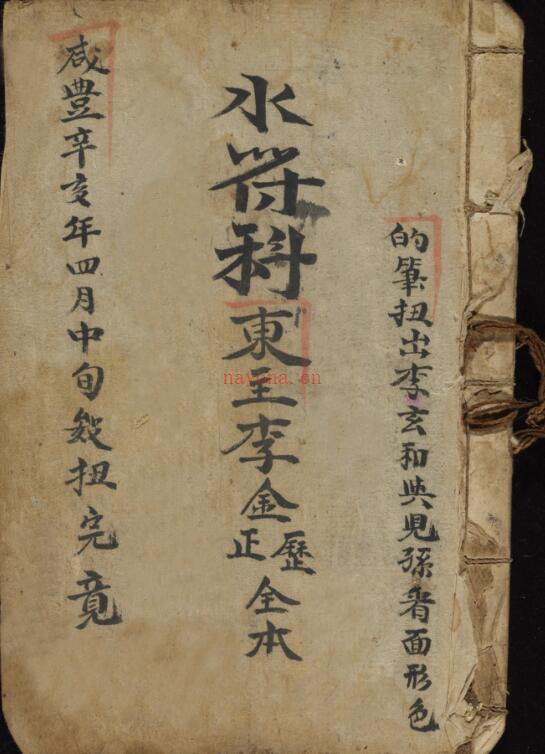 的筆扭出李玄和見孫看面形色
水符科東主李金歷正全本
咸豊辛亥年四月中旬扭完竟
nayona.cn